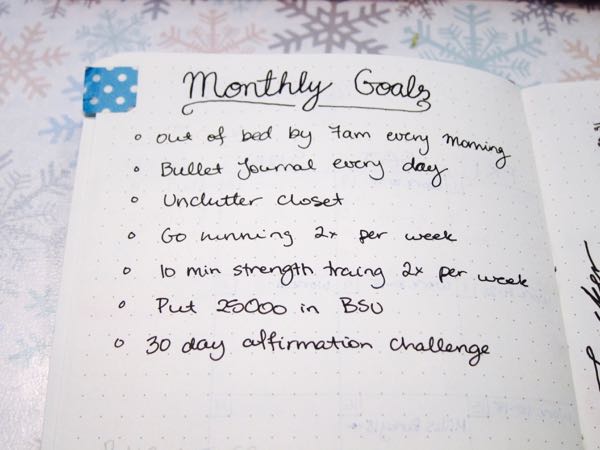 Monthly Goals
out of bed by 7am every morning
Bullet Journal every day
Unclutter closet
Go running 2x per week
10 min strength tracing 2x per week
Put 25000 in BSU
30 day affirmation challenge